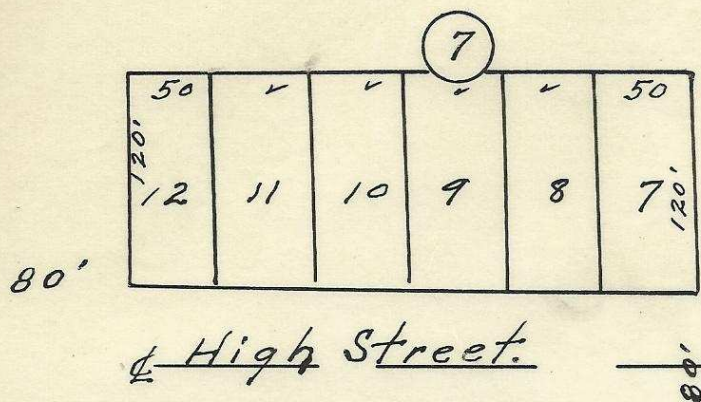 7
50 ✓ ✓ ✓ ✓ 50
120'
12 11 10 9 8 7
120'
80'
℄ High Street.
80'